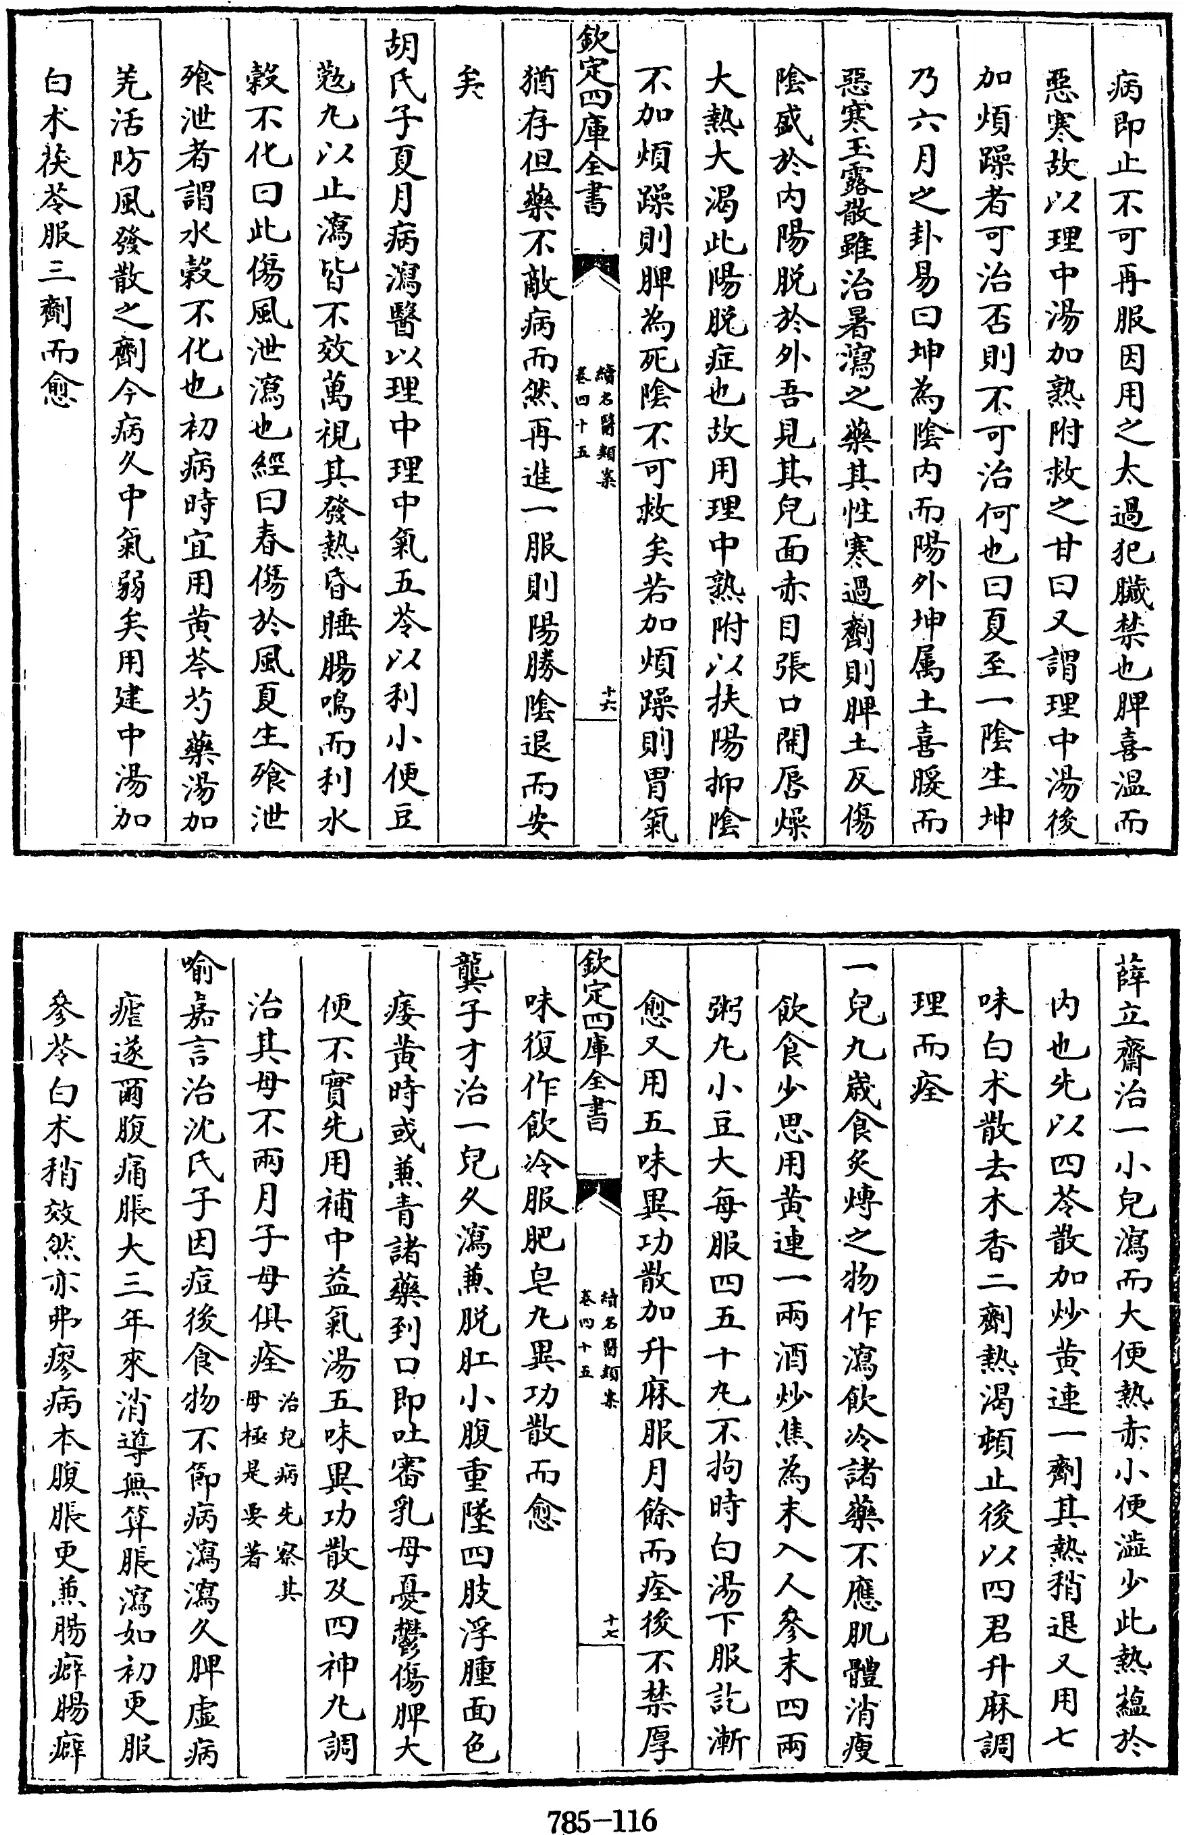 病即止不可再服因用之太過犯臟禁也脾喜温而
惡寒故以理中湯加熟附救之甘曰又謂理中湯後
加煩躁者可治否則不可治何也曰夏至一陰生坤
乃六月之卦易曰坤為陰内而陽外坤属土喜暖而
惡寒玉露散雖治暑瀉之藥其性寒過劑則脾土反傷
陰盛於内陽脱於外吾見其兒面赤目張口開唇燥
大熱大渴此陽脱症也故用理中熟附以扶陽抑陰
不加煩躁則脾為死陰不可救矣若加煩躁則胃氣
欽定四庫全書
續名醫類案
卷四十五
十六
猶存但藥不敵病而然再進一服則陽勝陰退而安
矣
胡氏子夏月病瀉醫以理中理中氣五苓以利小便豆
蔻丸以止瀉皆不效萬視其發熱昏睡腸鳴而利水
穀不化曰此傷風泄瀉也經曰春傷於風夏生飱泄
飱泄者謂水穀不化也初病時宜用黄芩芍藥湯加
羌活防風發散之劑今病久中氣弱矣用建中湯加
白术茯苓服三劑而愈
薛立齋治一小兒瀉而大便熱赤小便澁少此熱蘊於
内也先以四苓散加炒黄連一劑其熱稍退又用七
味白术散去木香二劑熱渴頓止後以四君升麻調
理而痊
一兒九歲食炙煿之物作瀉飲冷諸藥不應肌體消瘦
飲食少思用黄連一兩酒炒焦為末入人參末四兩
粥丸小豆大每服四五十丸不拘時白湯下服訖漸
愈又用五味異功散加升麻服月餘而痊後不禁厚
欽定四庫全書
續名醫類案
卷四十五
十七
味復作飲冷服肥皂丸異功散而愈
龔子才治一兒久瀉兼脱肛小腹重墜四肢浮腫面色
痿黄時或兼青諸藥到口即吐審乳母憂鬱傷脾大
便不實先用補中益氣湯五味異功散及四神丸調
治其母不兩月子母俱痊治兒病先察其
母極是要著
喻嘉言治沈氏子因痘後食物不節病瀉瀉久脾虚病
瘧遂爾腹痛脹大三年來消導無算脹瀉如初更服
參苓白术稍效然亦弗瘳病本腹脹更兼腸澼腸澼
785-116